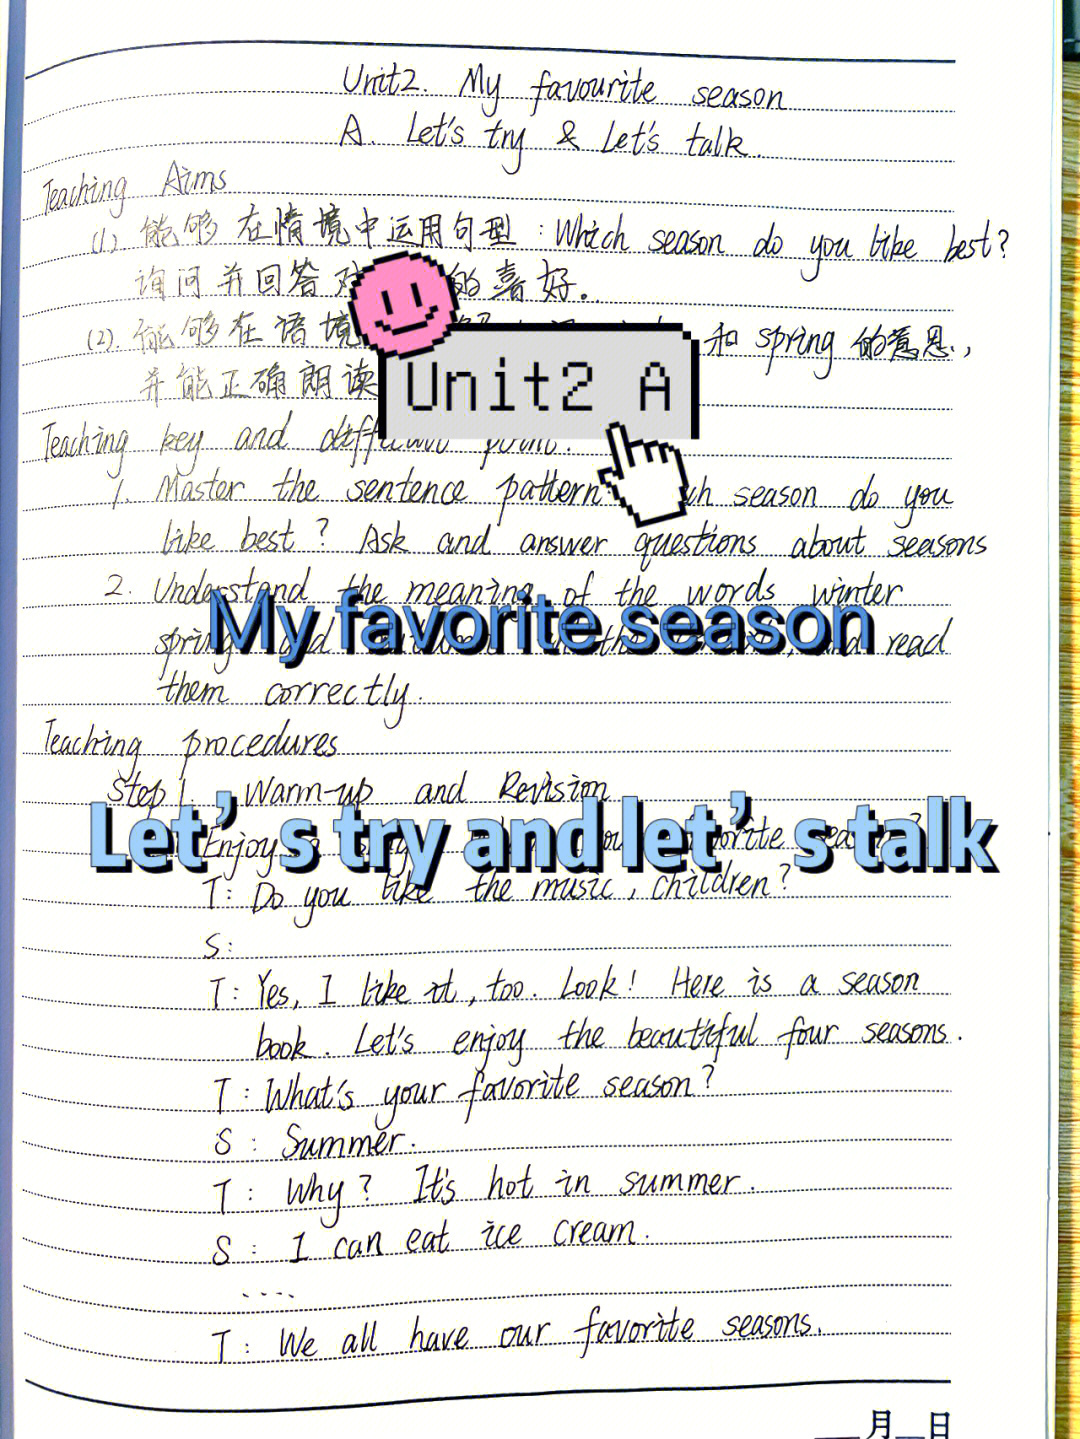 Unit2. My favourite season
A. Let's try & Let's talk.
Teaching Aims
(1) 能够在情境中运用句型:Which season do you like best?
询问并回答 的喜好。
(2). 能够在语境 和 spring 的意思,
并能正确朗读
Unit2 A
Teaching key and difficult point.
1. Master the sentence pattern: season do you
like best? Ask and answer questions about seasons
2. Understand the meaning of the words winter
My favorite season
spring and read
them correctly.
Teaching procedures
Step 1. Warm-up and Revision
Let's try and let's talk
Enjoy favorite season?
T: Do you like the music, children?
S:
T: Yes, I like it, too. Look! Here is a season
book. Let's enjoy the beautiful four seasons.
T: What's your favorite season?
S: Summer.
T: Why? It's hot in summer.
S: I can eat ice cream.
....
T: We all have our favorite seasons.
月 日